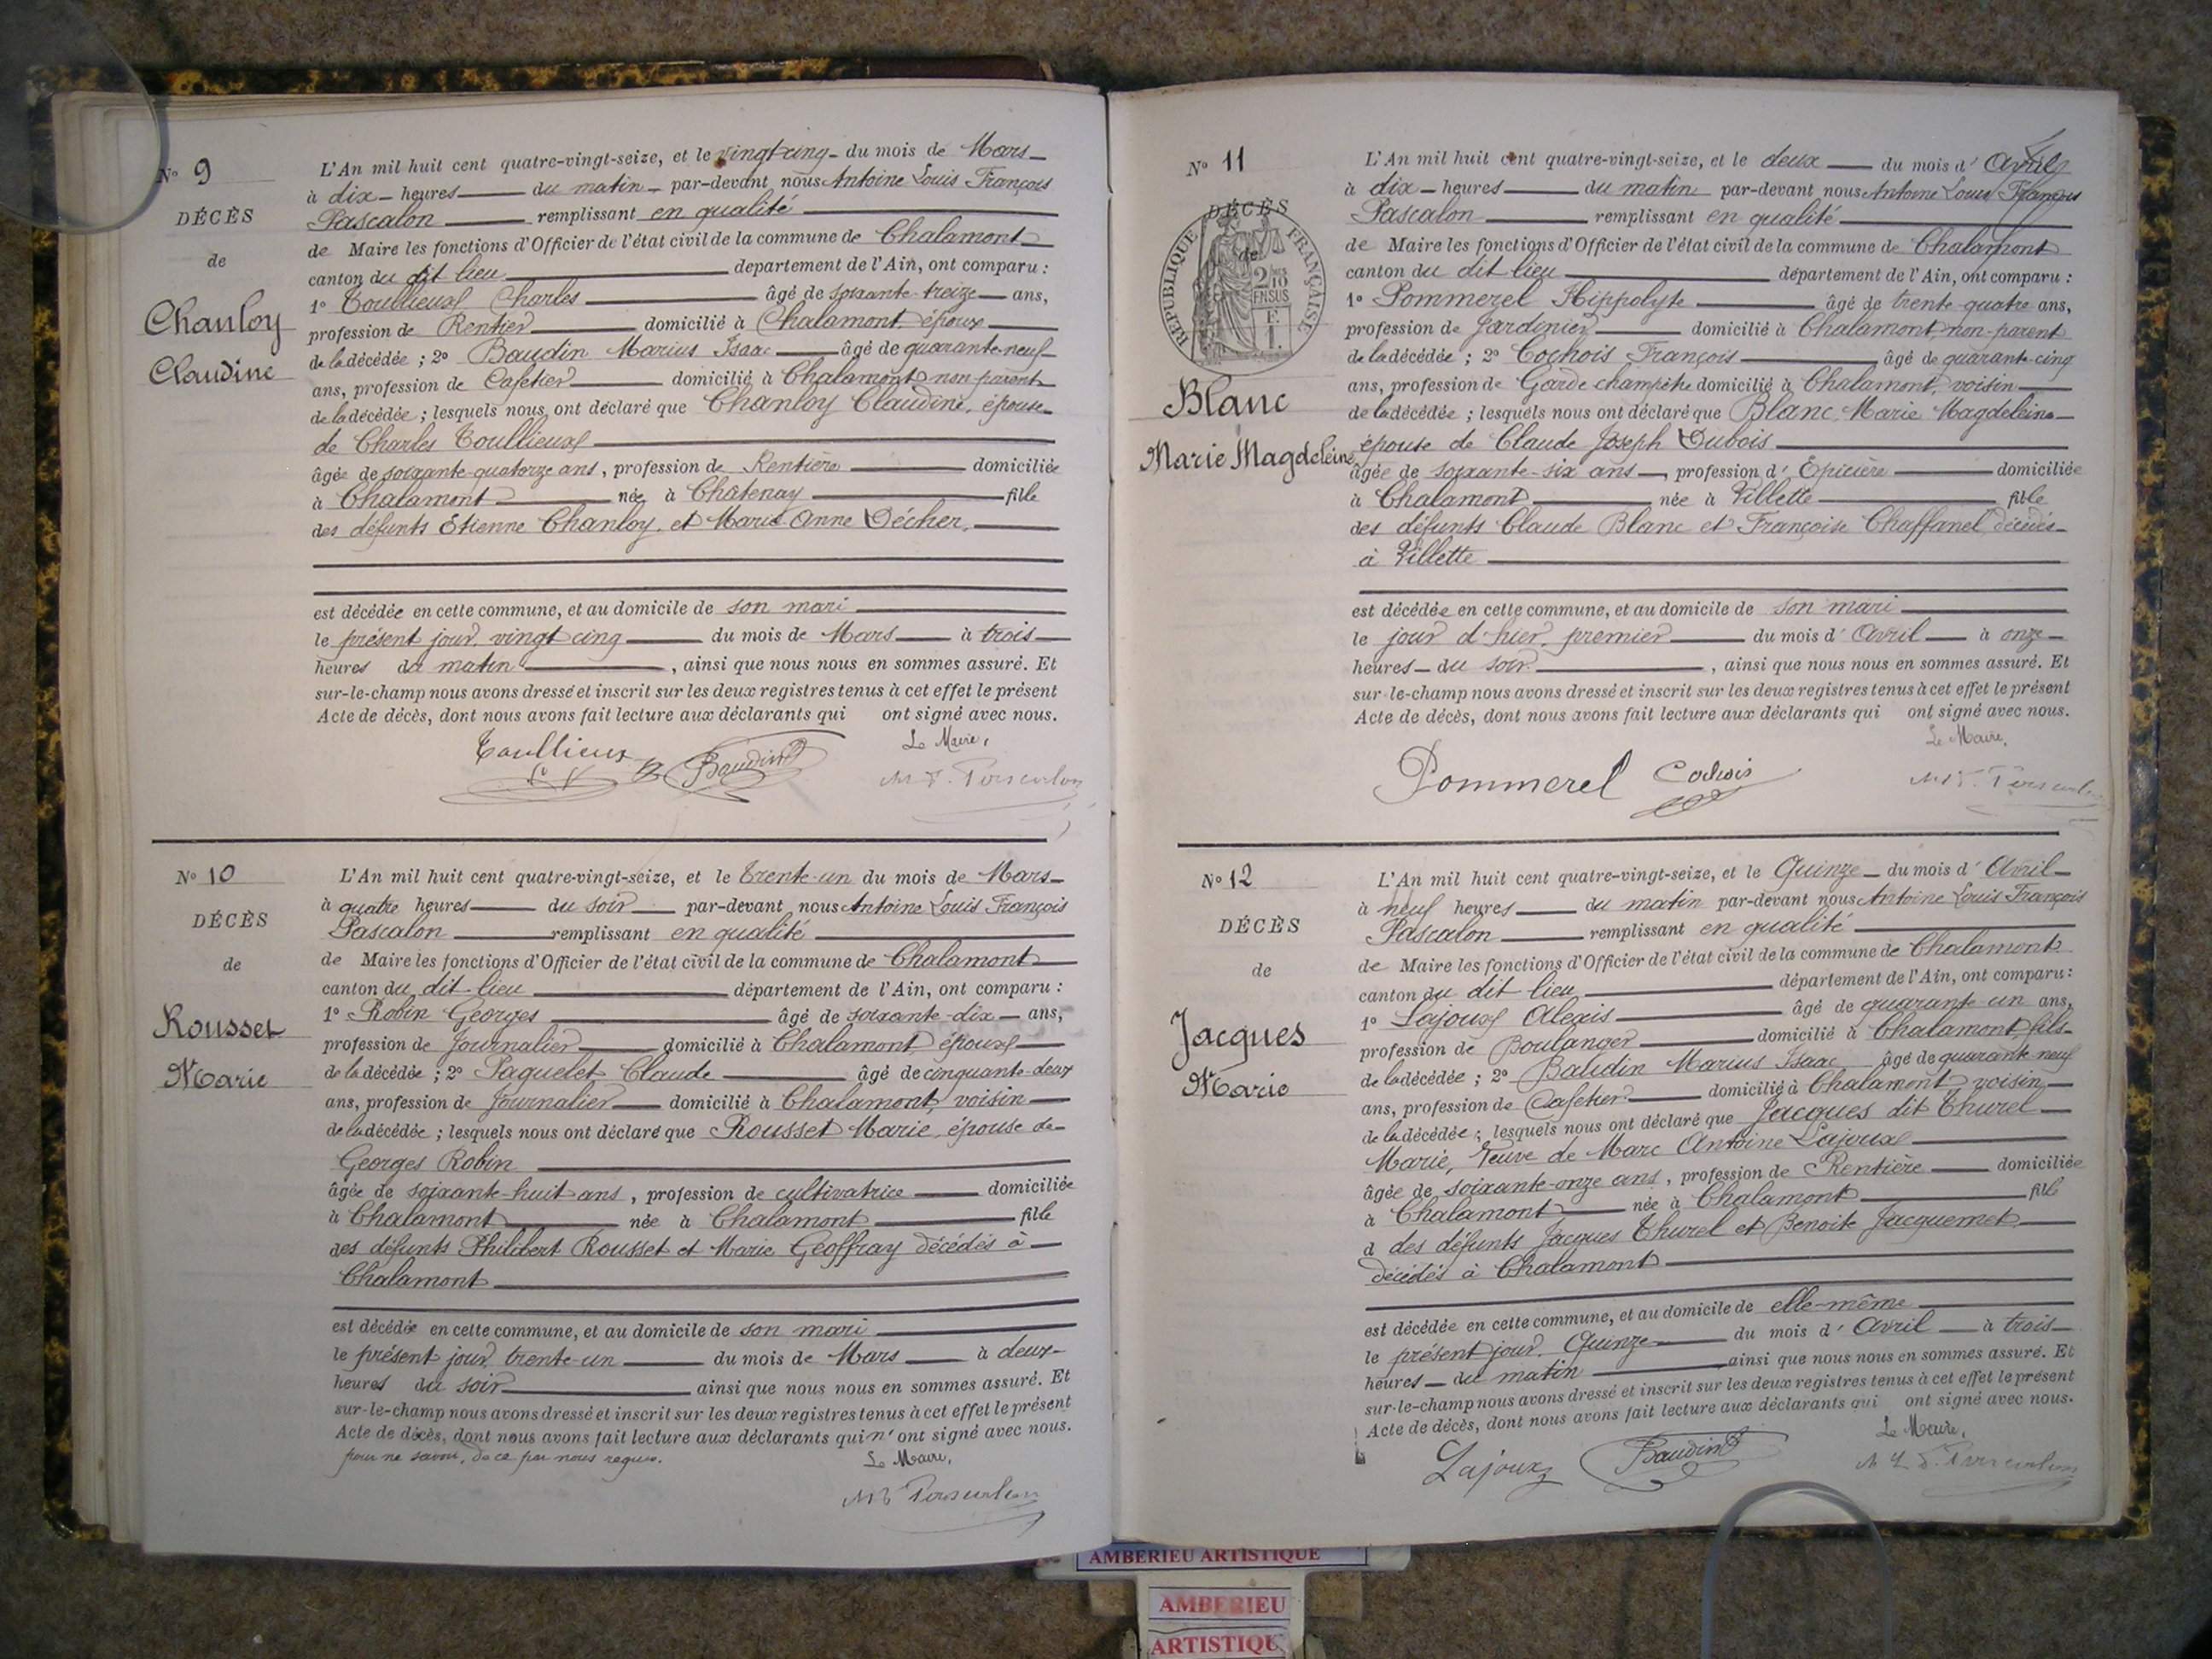 N° 9
DÉCÈS
de
Chanloy
Claudine
L'An mil huit cent quatre-vingt-seize, et le vingt cinq du mois de Mars
à dix heures du matin par-devant nous Antoine Louis François
Pascalon remplissant en qualité
de Maire les fonctions d'Officier de l'état civil de la commune de Chalamont
canton du dit lieu departement de l'Ain, ont comparu :
1° Toullieux Charles âgé de soixante-treize ans,
profession de Rentier domicilié à Chalamont, époux
de la décédée ; 2° Baudin Marius Isaac âgé de quarante-neuf
ans, profession de Cafetier domicilié à Chalamont non parent
de la décédée ; lesquels nous ont déclaré que Chanloy Claudine, épouse
de Charles Toullieux
âgée de soixante-quatorze ans, profession de Rentière domiciliée
à Chalamont née à Châtenay fille
des défunts Etienne Chanloy et Marie Anne Décher,
est décédée en cette commune, et au domicile de son mari
le présent jour, vingt cinq du mois de Mars à trois
heures du matin, ainsi que nous nous en sommes assuré. Et
sur-le-champ nous avons dressé et inscrit sur les deux registres tenus à cet effet le présent
Acte de décès, dont nous avons fait lecture aux déclarants qui ont signé avec nous.
Le Maire,
Toullieux Baudin
N° 10
DÉCÈS
de
Rousset
Marie
L'An mil huit cent quatre-vingt-seize, et le Trente-un du mois de Mars
à quatre heures du soir par-devant nous Antoine Louis François
Pascalon remplissant en qualité
de Maire les fonctions d'Officier de l'état civil de la commune de Chalamont
canton du dit lieu département de l'Ain, ont comparu :
1° Robin Georges âgé de soixante-dix ans,
profession de Journalier domicilié à Chalamont, époux
de la décédée ; 2° Paquelet Claude âgé de cinquante-deux
ans, profession de Journalier domicilié à Chalamont, voisin
de la décédée ; lesquels nous ont déclaré que Rousset Marie, épouse de
Georges Robin
âgée de soixante-huit ans, profession de cultivatrice domiciliée
à Chalamont née à Chalamont fille
des défunts Philibert Rousset et Marie Geoffray décédés à
Chalamont
est décédée en cette commune, et au domicile de son mari
le présent jour, trente-un du mois de Mars à deux
heures du soir ainsi que nous nous en sommes assuré. Et
sur-le-champ nous avons dressé et inscrit sur les deux registres tenus à cet effet le présent
Acte de décès, dont nous avons fait lecture aux déclarants qui n'ont signé avec nous.
pour ne savoir, de ce par nous requis.
Le Maire,
N° 11
DÉCÈS
de
RÉPUBLIQUE FRANÇAISE
2/10
EN SUS
F.
1.
Blanc
Marie Magdeleine
L'An mil huit cent quatre-vingt-seize, et le deux du mois d'Avril
à dix heures du matin par-devant nous Antoine Louis François
Pascalon remplissant en qualité
de Maire les fonctions d'Officier de l'état civil de la commune de Chalamont
canton du dit lieu département de l'Ain, ont comparu :
1° Pommerel Hippolyte âgé de trente-quatre ans,
profession de Jardinier domicilié à Chalamont, non-parent
de la décédée ; 2° Cochois François âgé de quarante-cinq
ans, profession de Garde champêtre domicilié à Chalamont, voisin
de la décédée ; lesquels nous ont déclaré que Blanc Marie Magdeleine
épouse de Claude Joseph Dubois
âgée de soixante-six ans, profession d'Epicière domiciliée
à Chalamont née à Villette fille
des défunts Claude Blanc et Françoise Chaffanel décédés
à Villette
est décédée en cette commune, et au domicile de son mari
le jour d'hier, premier du mois d'Avril à onze
heures du soir, ainsi que nous nous en sommes assuré. Et
sur-le-champ nous avons dressé et inscrit sur les deux registres tenus à cet effet le présent
Acte de décès, dont nous avons fait lecture aux déclarants qui ont signé avec nous.
Le Maire,
Pommerel Cochois
N° 12
DÉCÈS
de
Jacques
Marie
L'An mil huit cent quatre-vingt-seize, et le Quinze du mois d'Avril
à neuf heures du matin par-devant nous Antoine Louis François
Pascalon remplissant en qualité
de Maire les fonctions d'Officier de l'état civil de la commune de Chalamont
canton du dit lieu département de l'Ain, ont comparu :
1° Lajoux Alexis âgé de quarante un ans,
profession de Boulanger domicilié à Chalamont, fils
de la décédée ; 2° Baudin Marius Isaac âgé de quarante neuf
ans, profession de Cafetier domicilié à Chalamont voisin
de la décédée ; lesquels nous ont déclaré que Jacques dit Thurel
Marie, veuve de Marc Antoine Lajoux
âgée de soixante-onze ans, profession de Rentière domiciliée
à Chalamont née à Chalamont fille
d des défunts Jacques Thurel et Benoite Jacquemet
décédés à Chalamont
est décédée en cette commune, et au domicile de elle-même
le présent jour, Quinze du mois d'Avril à trois
heures du matin ainsi que nous nous en sommes assuré. Et
sur-le-champ nous avons dressé et inscrit sur les deux registres tenus à cet effet le présent
Acte de décès, dont nous avons fait lecture aux déclarants qui ont signé avec nous.
Le Maire,
Lajoux Baudin
AMBERIEU ARTISTIQUE
AMBERIEU
ARTISTIQU